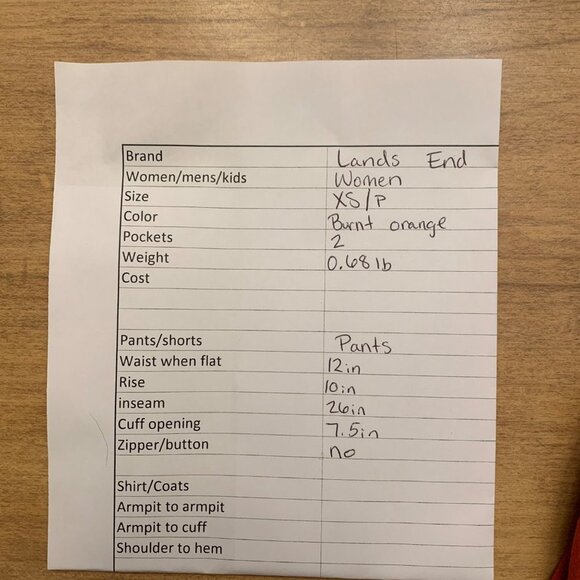 Brand Lands End
Women/mens/kids Women
Size XS/P
Color Burnt orange
Pockets 2
Weight 0.68 lb
Cost
Pants/shorts Pants
Waist when flat 12in
Rise 10in
inseam 26in
Cuff opening 7.5in
Zipper/button no
Shirt/Coats
Armpit to armpit
Armpit to cuff
Shoulder to hem